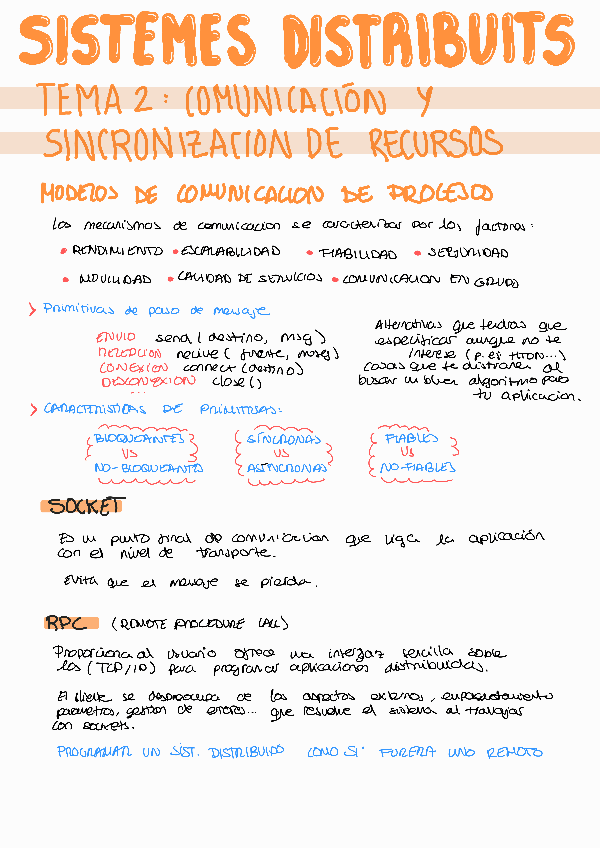 SISTEMES DISTRIBUITS
TEMA 2: COMUNICACIÓN Y
SINCRONIZACION DE RECURSOS
MODELOS DE COMUNICACION DE PROCESOS
Los mecanismos de comunicacion se caracterizan por los factores:
• RENDIMIENTO • ESCALABILIDAD • FIABILIDAD • SEGURIDAD
• MOVILIDAD • CALIDAD DE SERVICIOS • COMUNICACION EN GRUPO
> Primitivas de paso de mensaje
ENVIO send ( destino, msg )
RECEPCION recive ( fuente, msg )
CONEXION connect (destino)
DESCONEXION close ()
...
Alternativas que tendras que
especificar aunque no te
interese (p. ej
cosas que te distraen al
buscar un buen algoritmo para
tu aplicacion.
> CARACTERISTICAS DE PRIMITIVAS:
BLOQUEANTES
VS
NO-BLOQUEANTES
SÍNCRONAS
VS
ASÍNCRONAS
FIABLES
VS
NO-FIABLES
SOCKET
Es un punto final de comunicacion que liga la aplicación
con el nivel de transporte.
Evita que el mensaje se pierda.
RPC (REMOTE PROCEDURE CALL)
Proporciona al usuario ofrece una interfaz sencilla sobre
los (TCP/IP) para programar aplicaciones distribuidas.
El cliente se despreocupa de los aspectos externos, empaquetamiento
parametros, gestion de errores... que resuelve el sistema al trabajar
con sockets.
PROGRAMAR UN SIST. DISTRIBUIDO COMO SI FUERERA UNO REMOTO